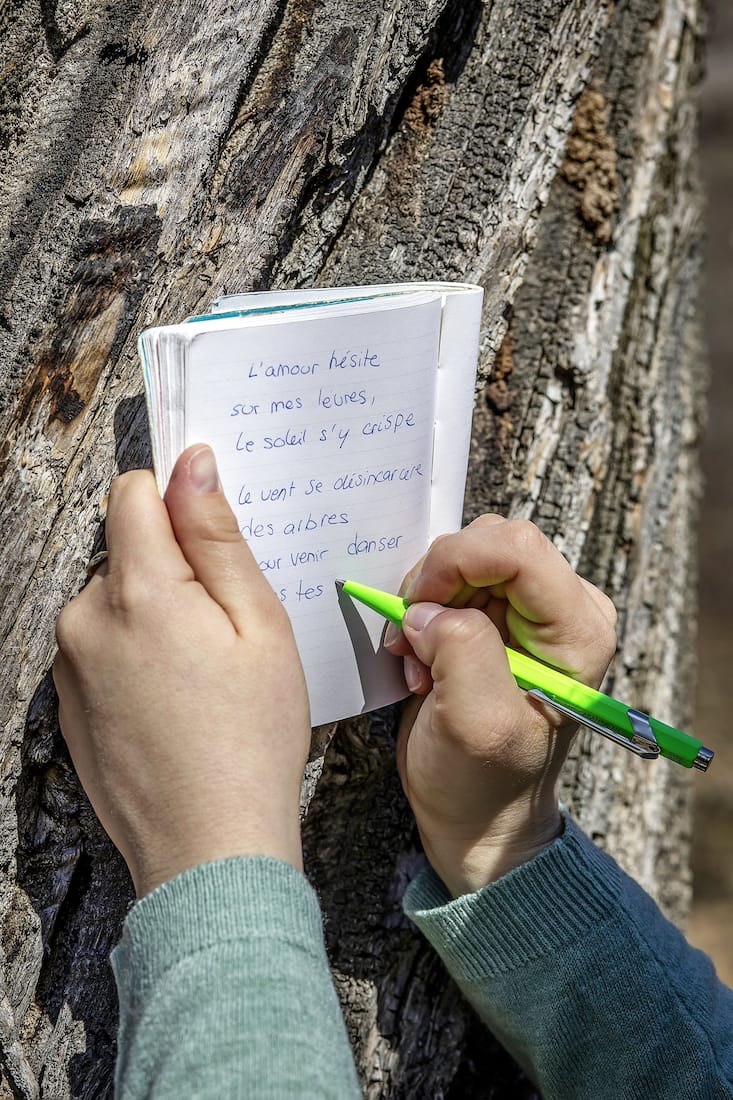 L'amour hésite
sur mes lèvres,
Le soleil s'y crispe
Le vent se désincarcère
des arbres
our venir danser
s tes